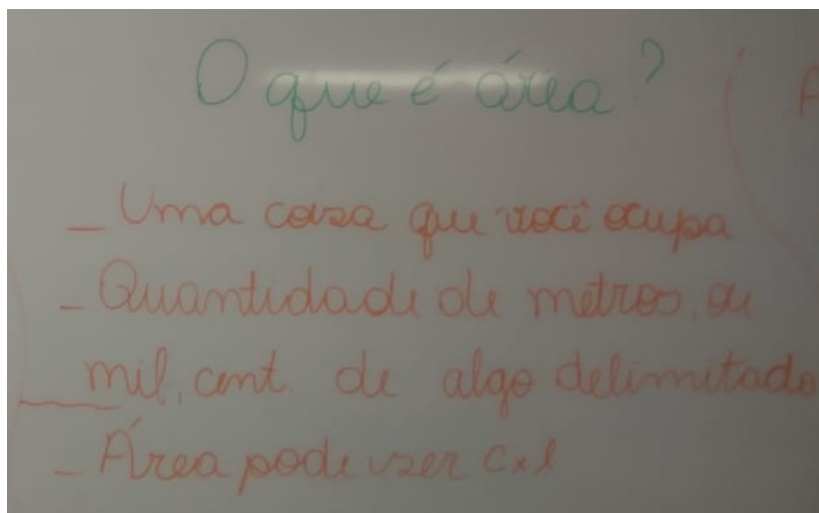 O que é área?
_ Uma coisa que você ocupa
_ Quantidade de metros, ou
mil, cent. de algo delimitado
_ Área pode ser c x l